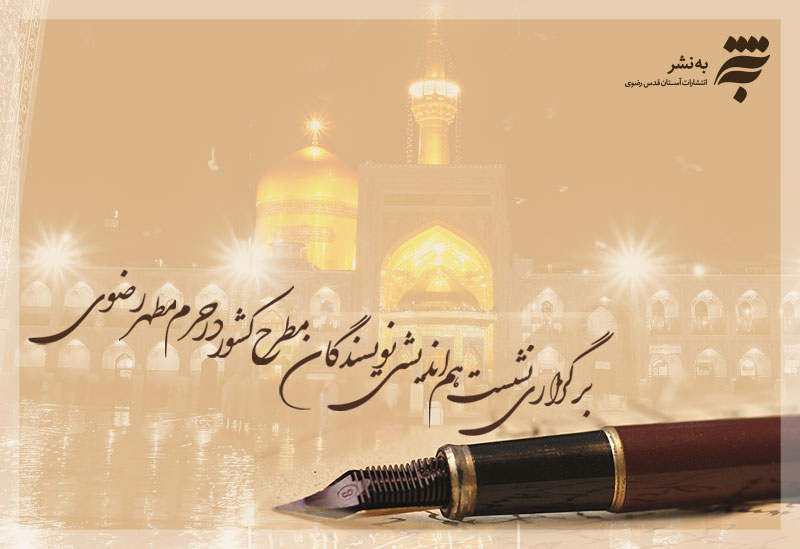 به‌نشر
انتشارات آستان قدس رضوی
برگزاری نشست هم‌اندیشی نویسندگان مطرح کشور در حرم مطهر رضوی